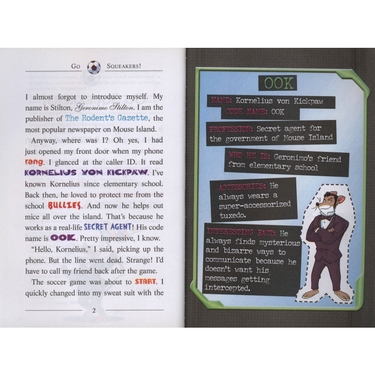 GO SQUEAKERS!
I almost forgot to introduce myself. My
name is Stilton, Geronimo Stilton. I am the
publisher of The Rodent's Gazette, the
most popular newspaper on Mouse Island.
Anyway, where was I? Oh yes, I had
just opened my front door when my phone
rang. I glanced at the caller ID. It read
KORNELIUS VON KICKPAW. I've
known Kornelius since elementary school.
Back then he loved to protect me from the
school BULLIES. And now he helps out
mice all over the island. That's because he
works as a real-life SECRET AGENT! His code
name is OOK. Pretty impressive, I know.
"Hello, Kornelius," I said, picking up the
phone. But the line went dead. Strange! I'd
have to call my friend back after the game.
The soccer game was about to START. I
quickly changed into my sweat suit with the
2
OOK
NAME: Kornelius von Kickpaw
CODE NAME: OOK
PROFESSION: Secret agent for
the government of Mouse Island
WHO HE IS: Geronimo's friend
from elementary school
ACCESSORIES: He
always wears a
super-accessorized
tuxedo.
INTERESTING FACT: He
always finds mysterious
and bizarre ways to
communicate because he
doesn't want his
messages getting
intercepted.